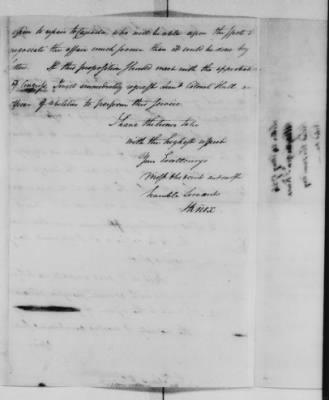 officer to repair to Canada, who will be able upon the spot to
negociate the affair much sooner than it could be done by
If this proposition should meet with the approbation
of Congress I will immediately Colonel Hull an
officer of abilities to perform this service.
I have the honor to be
with the highest respect
Your Excellencys
Most obedient and most
humble Servant
HKnox